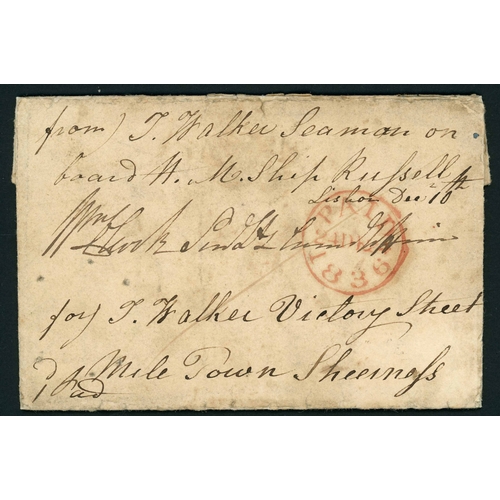 from) J. Walker Seaman on
board H. M. Ship Russell
Lisbon Dec 10th
Wm
PAID
1836
for) J. Walker Victory Street
Mile Town Sheerness
1d Paid